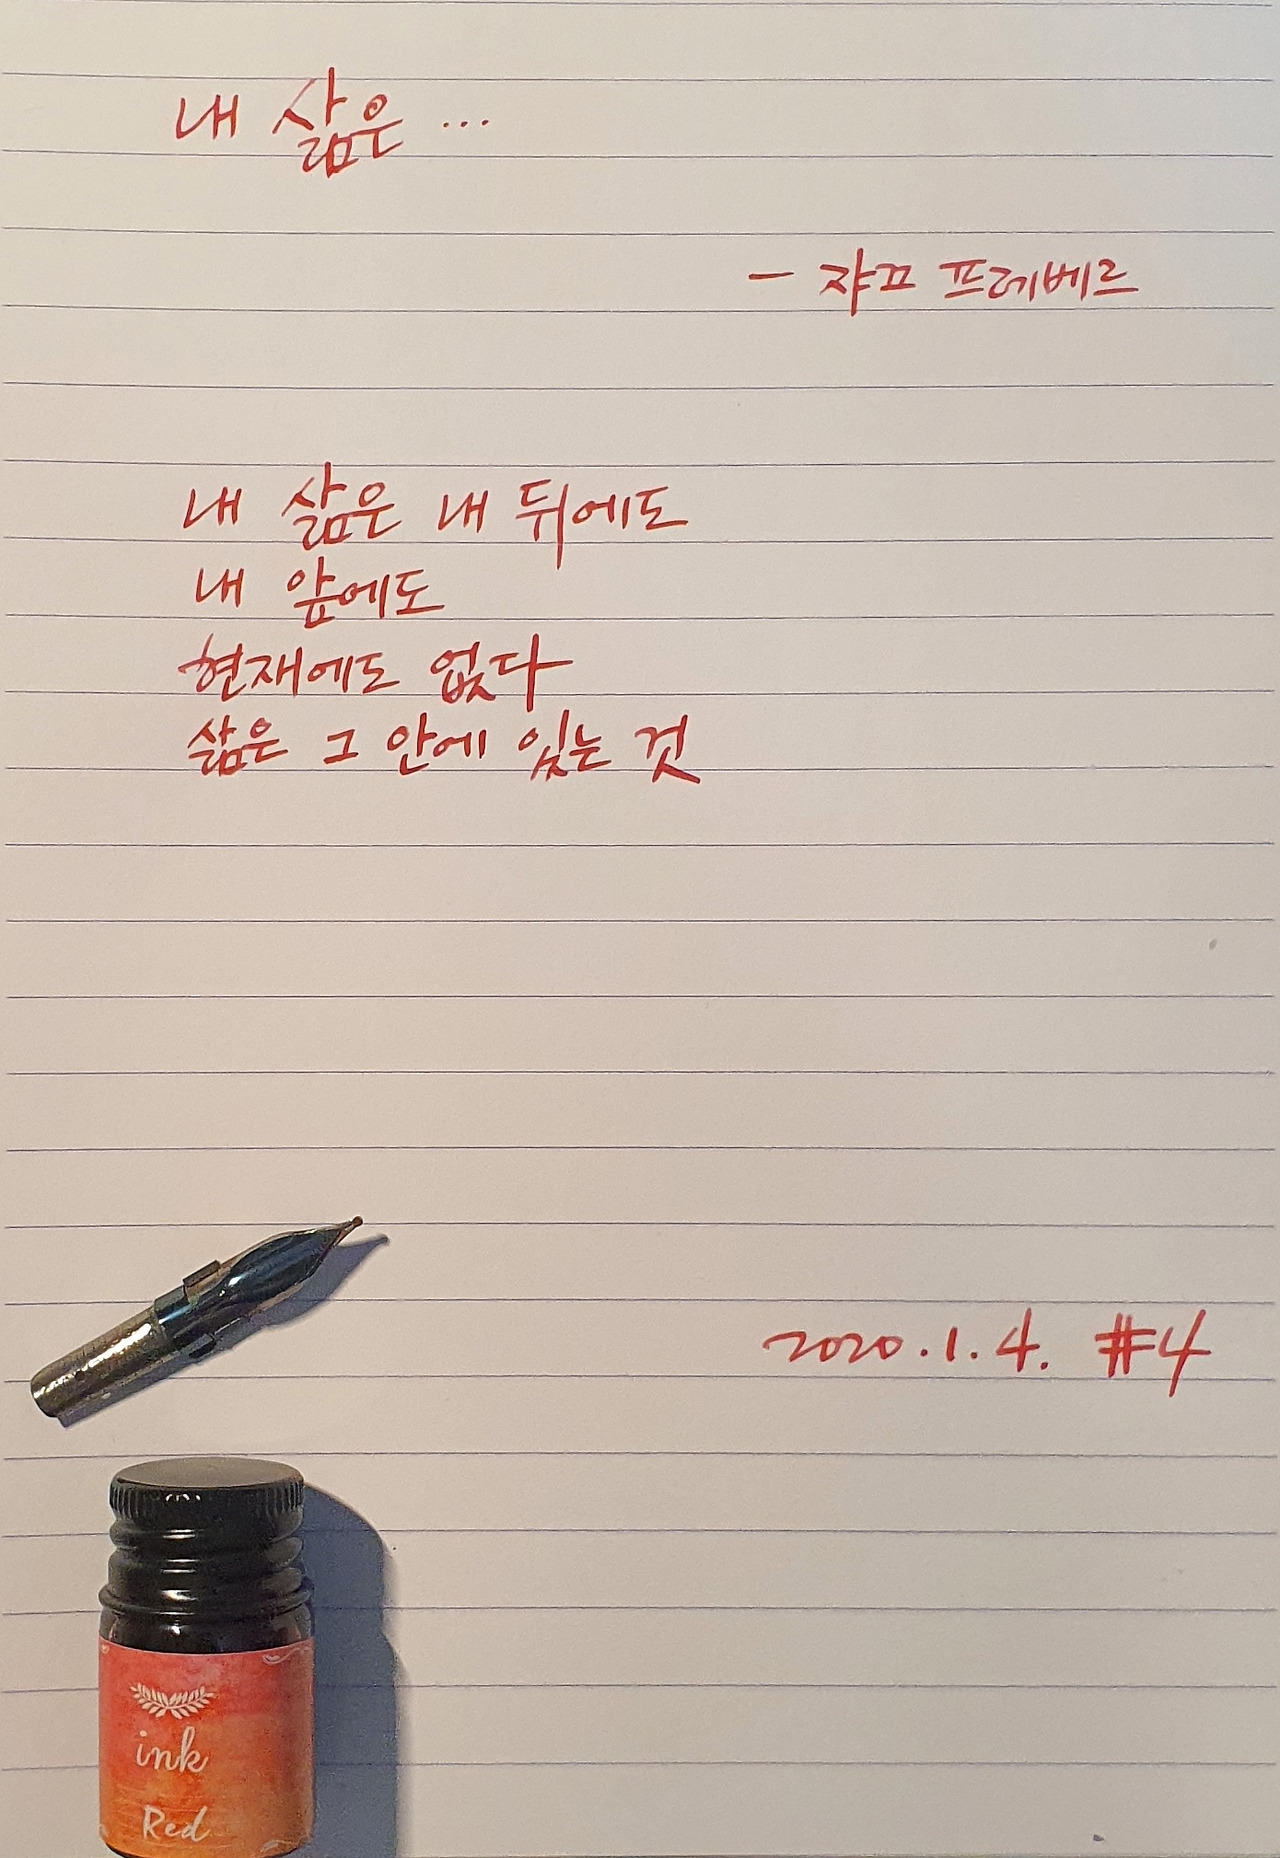 내 삶은 ...
- 쟈끄 프레베르
내 삶은 내 뒤에도
내 앞에도
현재에도 없다
삶은 그 안에 있는 것
2020.1.4. #4
ink
Red